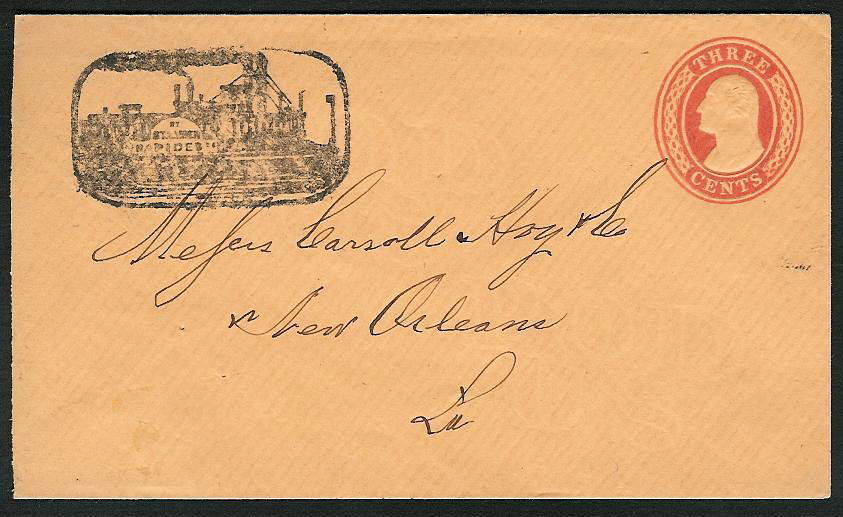 THREE
CENTS
BY
STEAMER
RAPIDES
Messrs Carroll Hoy & Co
New Orleans
La